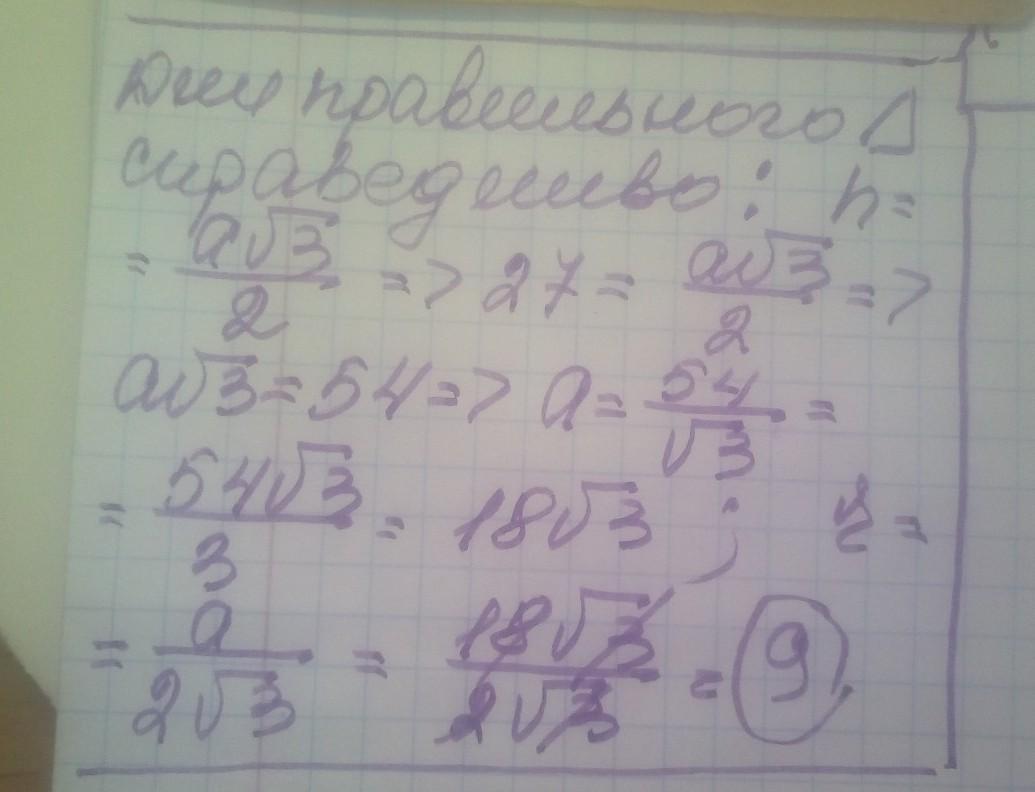 Для правильного △
справедливо: h =
= a√3/2 => 27 = a√3/2 =>
a√3 = 54 => a = 54/√3 =
= 54√3/3 = 18√3 ; r =
= a/2√3 = 18√3/2√3 = 9.